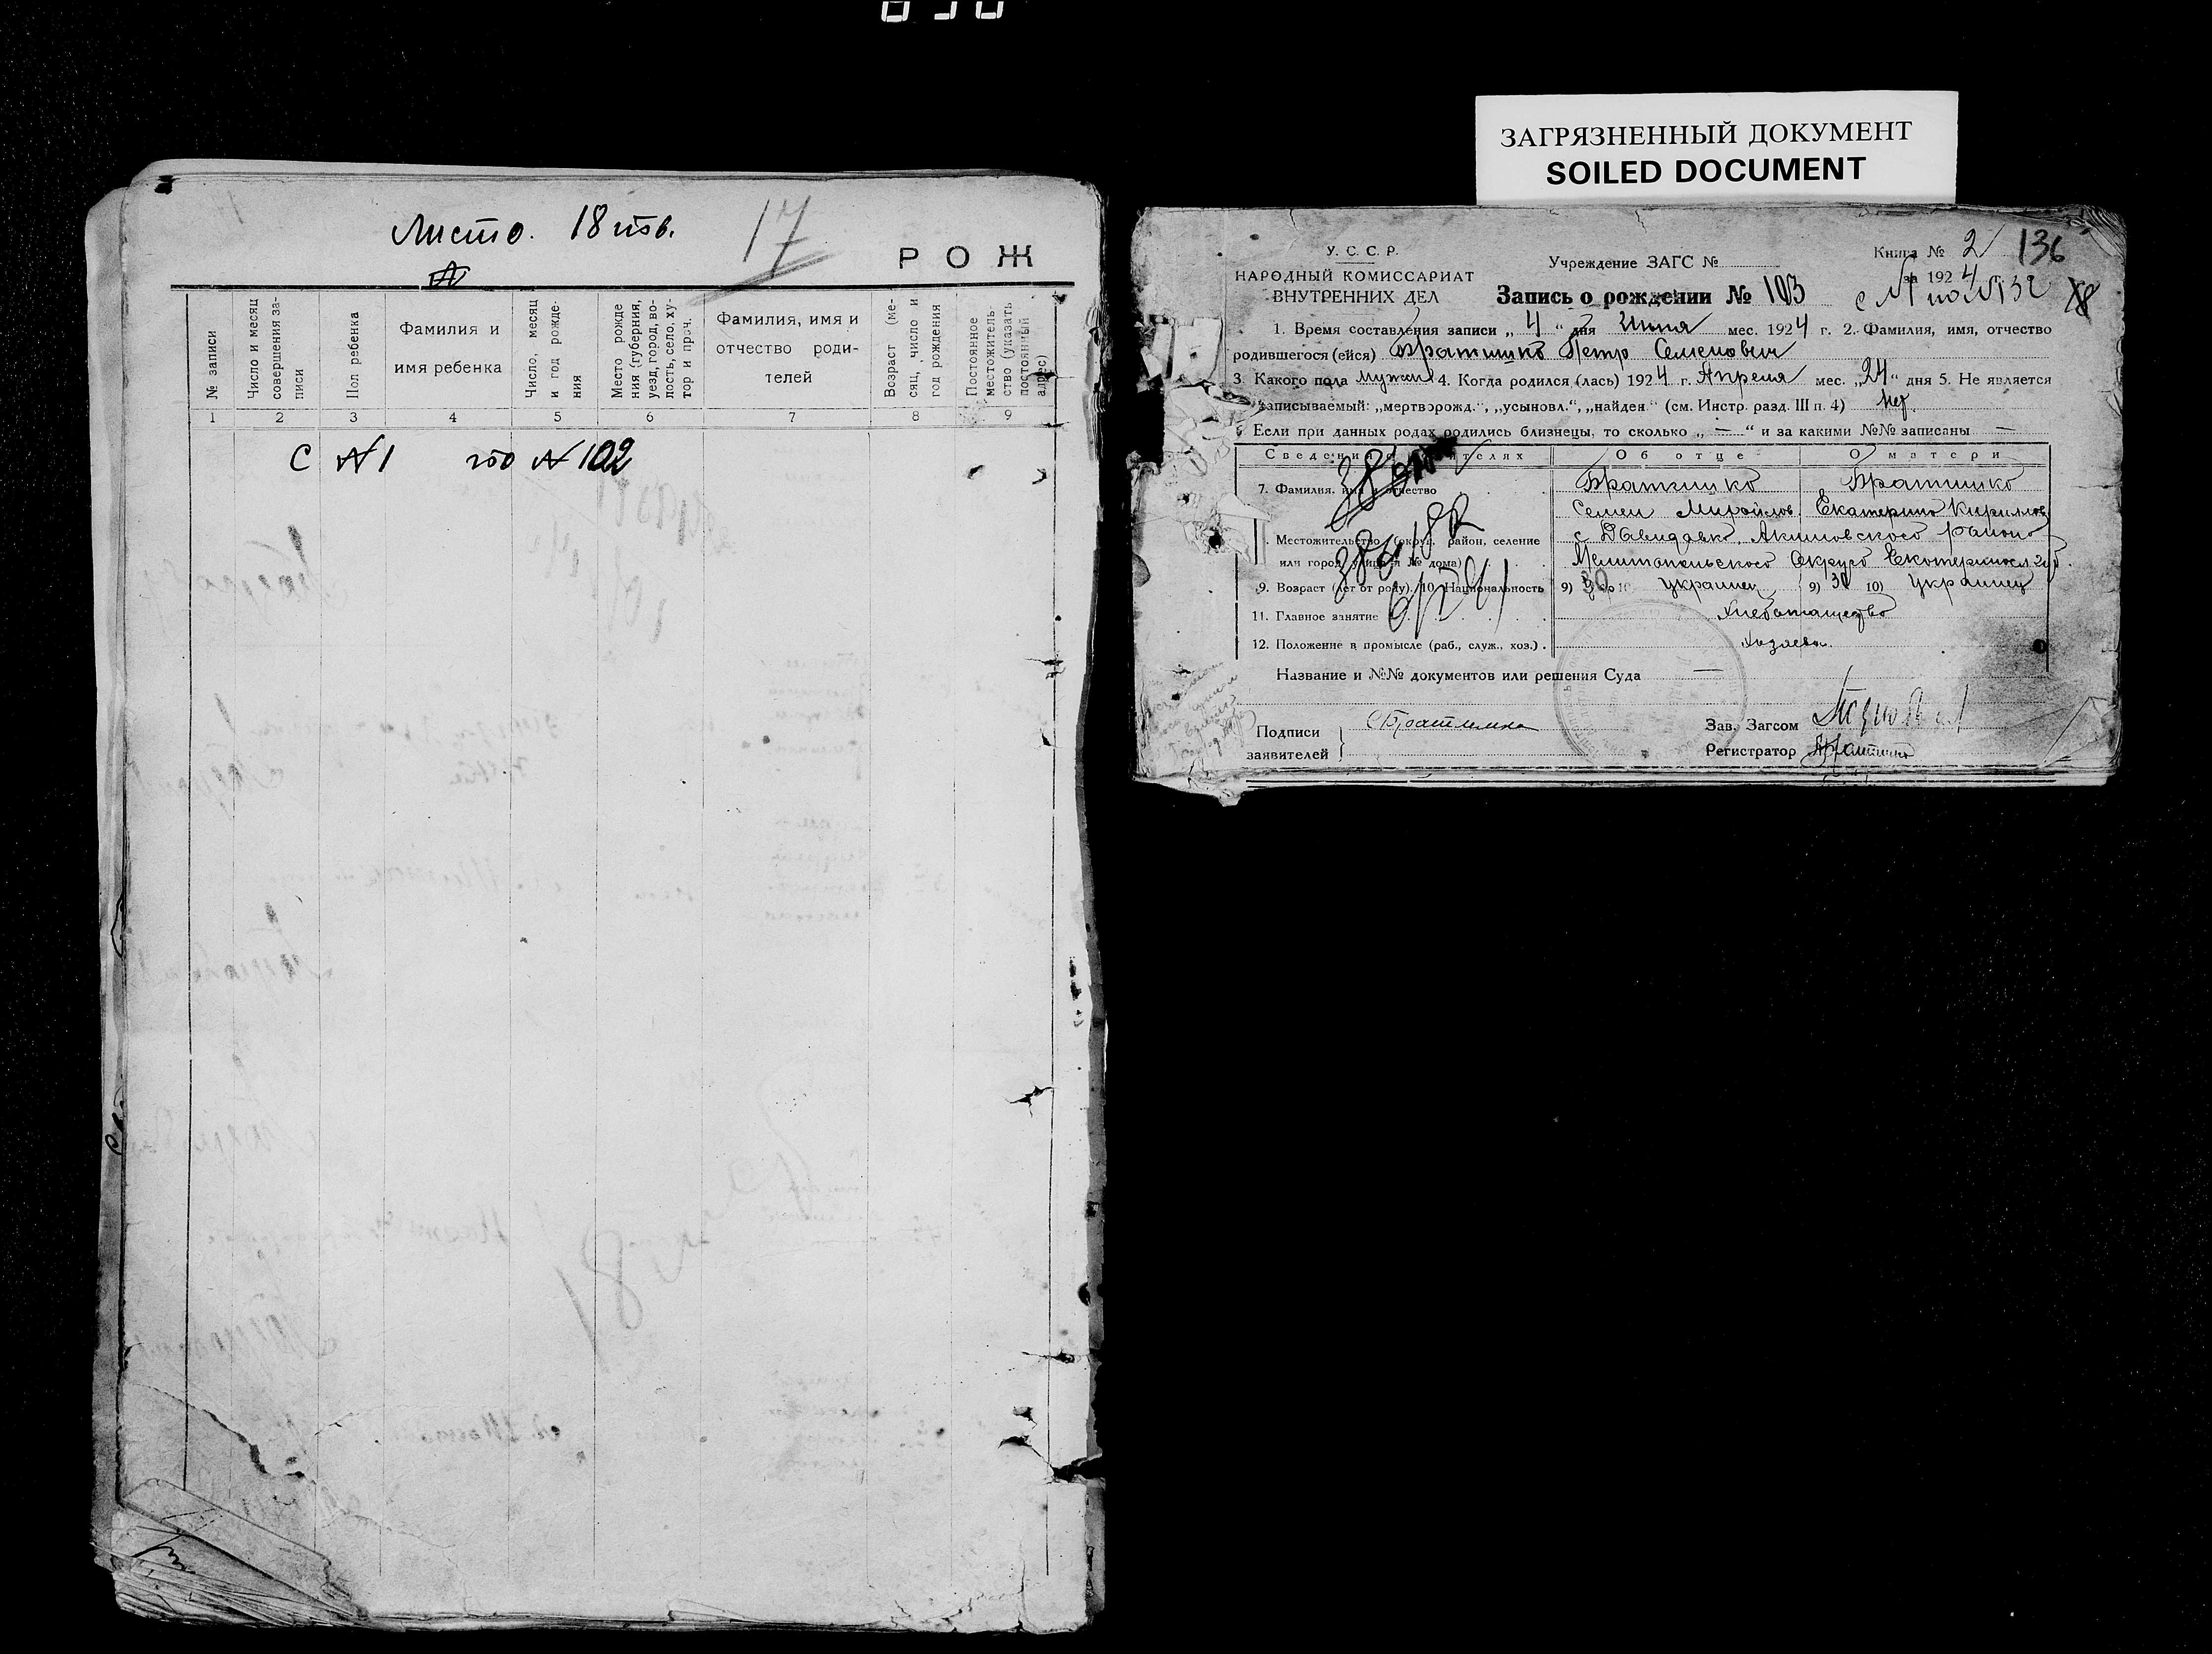 Листо. 18 изв.
17
Р О Ж
№ записи
Число и месяц совершения за-
писи
Пол ребенка
Фамилия и
имя ребенка
Число, месяц
и год рожде-
ния
Место рожде
ния (губерния,
уезд, город, во-
лость, село, ху-
тор и проч.
Фамилия, имя и
отчество роди-
телей
Возраст (ме-
сяц, число и
год рождения
Постоянное
местожитель-
ство (указать
постоянный
адрес)
1 2 3 4 5 6 7 8 9
С №1 по №102
ЗАГРЯЗНЕННЫЙ ДОКУМЕНТ
SOILED DOCUMENT
У. С. С. Р.
НАРОДНЫЙ КОМИССАРИАТ
ВНУТРЕННИХ ДЕЛ
Учреждение ЗАГС №
Книга № 2 136
за 1924
с №1 по №132
Запись о рождении № 103
1. Время составления записи „ 4 “ дня Июня мес. 1924 г. 2. Фамилия, имя, отчество
родившегося (ейся) Братишко Петр Семенович
3. Какого пола мужск 4. Когда родился (лась) 1924 г. Апреля мес. „24“ дня 5. Не является
записываемый: „мертворожд.“, „усыновл.“, „найден“ (см. Инстр. разд. III п. 4) Нет
Если при данных родах родились близнецы, то сколько „ — “ и за какими №№ записаны —
Об отце О матери
7. Фамилия, имя и отчество Братишко Братишко
Семен Екатерина Кириллов
Местожительство (округ, район, селение с Давидовка, Акимовского района
или город, улица и № дома) Мелитопольского Округа Екатериносл губ.
9. Возраст (лет от роду). 10. Национальность 9) 30 10 Украинец 9) 30 10) Украинец
11. Главное занятие Хлебопашество
12. Положение в промысле (раб., служ., хоз.) . Хозяева
Название и №№ документов или решения Суда —
Подписи
заявителей
Зав. Загсом
Регистратор